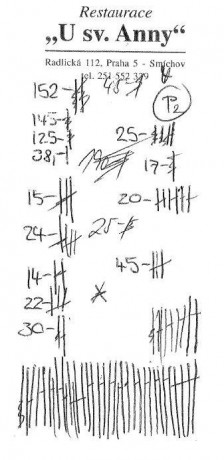 Restaurace
„U sv. Anny“
Radlická 112, Praha 5 - Smíchov
tel. 251 552 339
152- 45-
P2
145-
125- 25-
38,-
17-
15- 20-
24- 25-
14- 45-
22-
30-